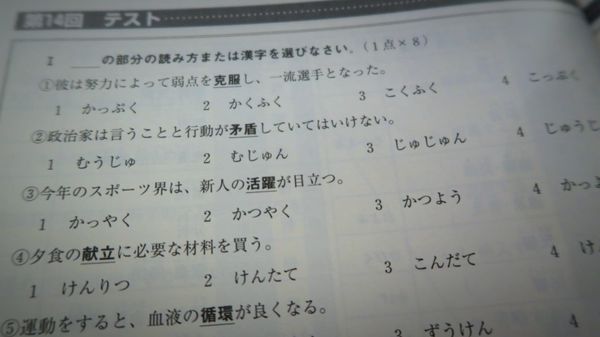 第14回 テスト
I ＿＿の部分の読み方または漢字を選びなさい。(1点×8)
①彼は努力によって弱点を克服し、一流選手となった。
1 かっぷく 2 かくふく 3 こくふく 4 こっぷく
②政治家は言うことと行動が矛盾していてはいけない。
1 むうじゅ 2 むじゅん 3 じゅじゅん 4 じゅうじ
③今年のスポーツ界は、新人の活躍が目立つ。
1 かっやく 2 かつやく 3 かつよう 4 かっよ
④夕食の献立に必要な材料を買う。
1 けんりつ 2 けんたて 3 こんだて 4 け
⑤運動をすると、血液の循環が良くなる。
3 ずうけん 4